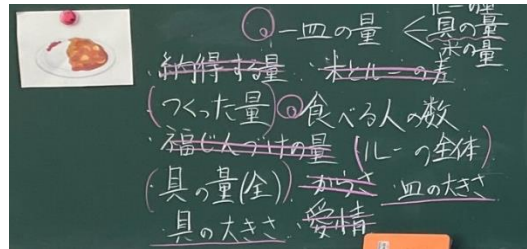 一皿の量 < ルーの量
具の量
米の量
・納得する量 ・米とルーの差
(つくった量) 食べる人の数
・福じんづけの量 (ルーの全体)
(具の量(全)) ・からさ ・皿の大きさ
・具の大きさ ・愛情